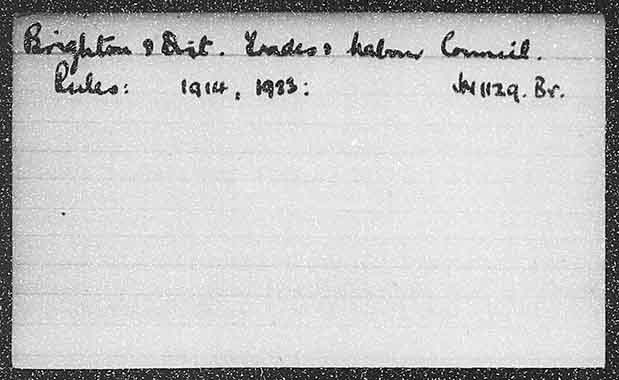 Brighton & Dist. Trades & Labour Council.
Rules: 1914, 1933: JN1129. Br.